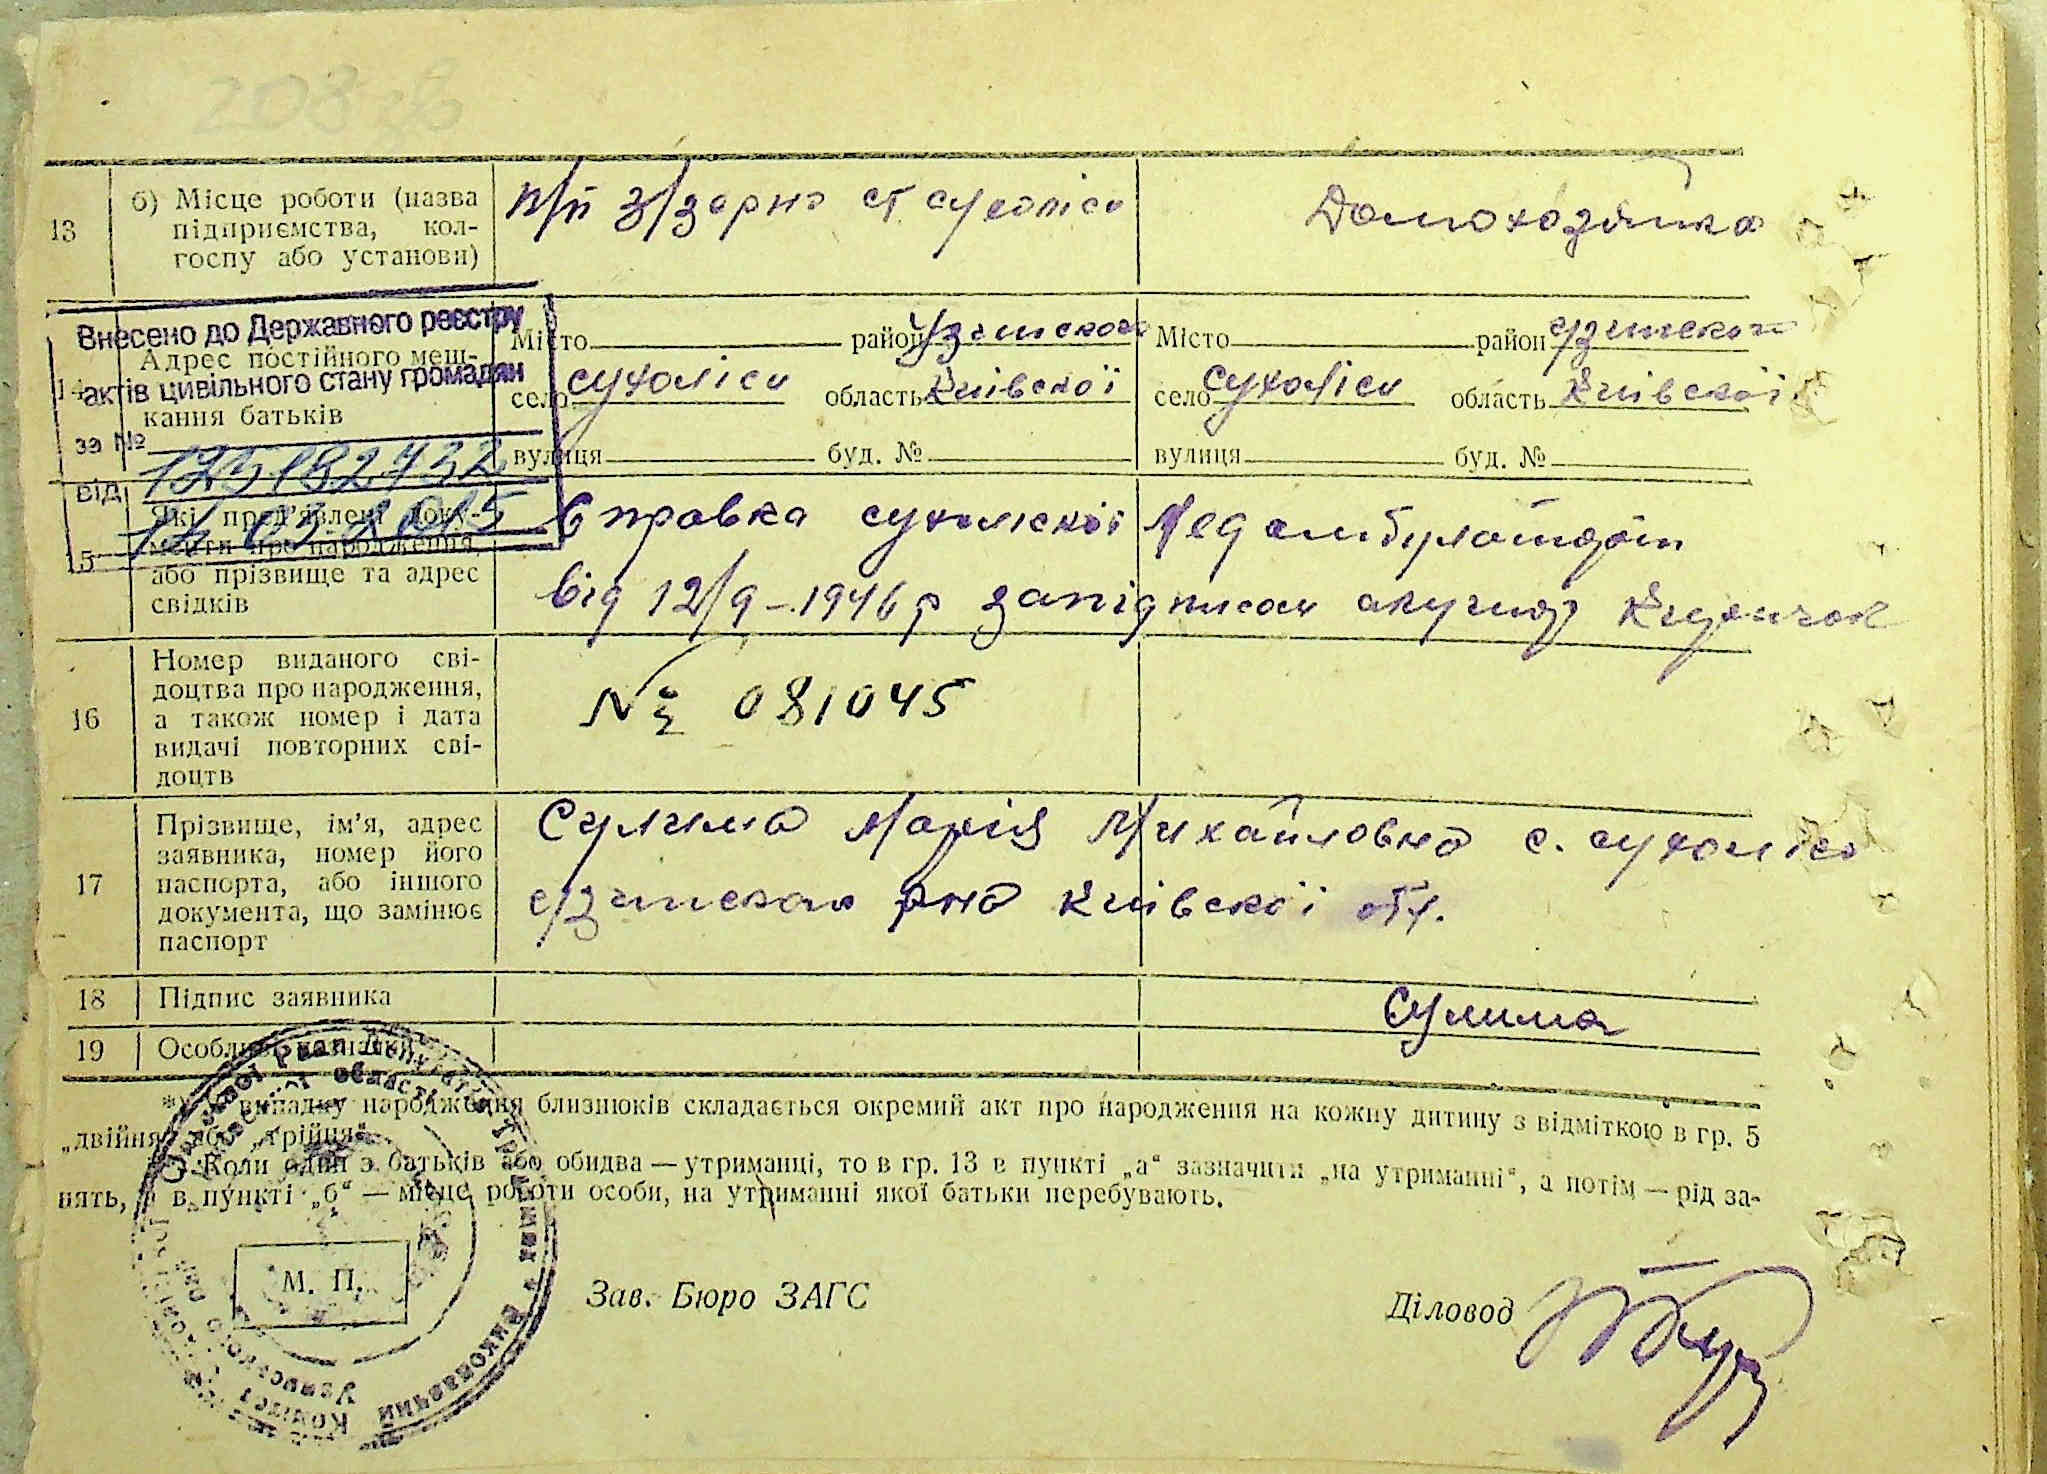 208 зв
13
б) Місце роботи (назва
підприємства, кол-
госпу або установи)
п/п з/зерно ст сухоліси
Домохозяйка
Внесено до Державного реєстру
актів цивільного стану громадян
за №
125182732
від
03 2015
14
Адрес постійного меш-
кання батьків
Місто район Узинского
село сухоліси область Київскої
вулиця буд. №
Місто район Узинского
село сухоліси область Київскої
вулиця буд. №
15
Які пред'явлені доку-
менти про народження,
або прізвище та адрес
свідків
Справка сухоліскої Мед
від 12/9-1946 р за підписом
16
Номер виданого сві-
доцтва про народження,
а також номер і дата
видачі повторних сві-
доцтв
№ 081045
17
Прізвище, ім'я, адрес
заявника, номер його
паспорта, або іншого
документа, що замінює
паспорт
Сулима Марія Михайловна с. сухоліси
Узинского рна Київскої обл.
18
Підпис заявника
Сулима
19
Особливі зазначки
*) У випадку народження близнюків складається окремий акт про народження на кожну дитину з відміткою в гр. 5
„двійня“ або „трійня“.
Коли один з батьків або обидва — утриманці, то в гр. 13 в пункті „а“ зазначити „на утриманні“, а потім — рід за-
нять, а в пункті „б“ — місце роботи особи, на утриманні якої батьки перебувають.
М. П.
Зав. Бюро ЗАГС
Діловод
Ради Депутатів Трудящих
області
Виконавчий
Комітет
Узинського